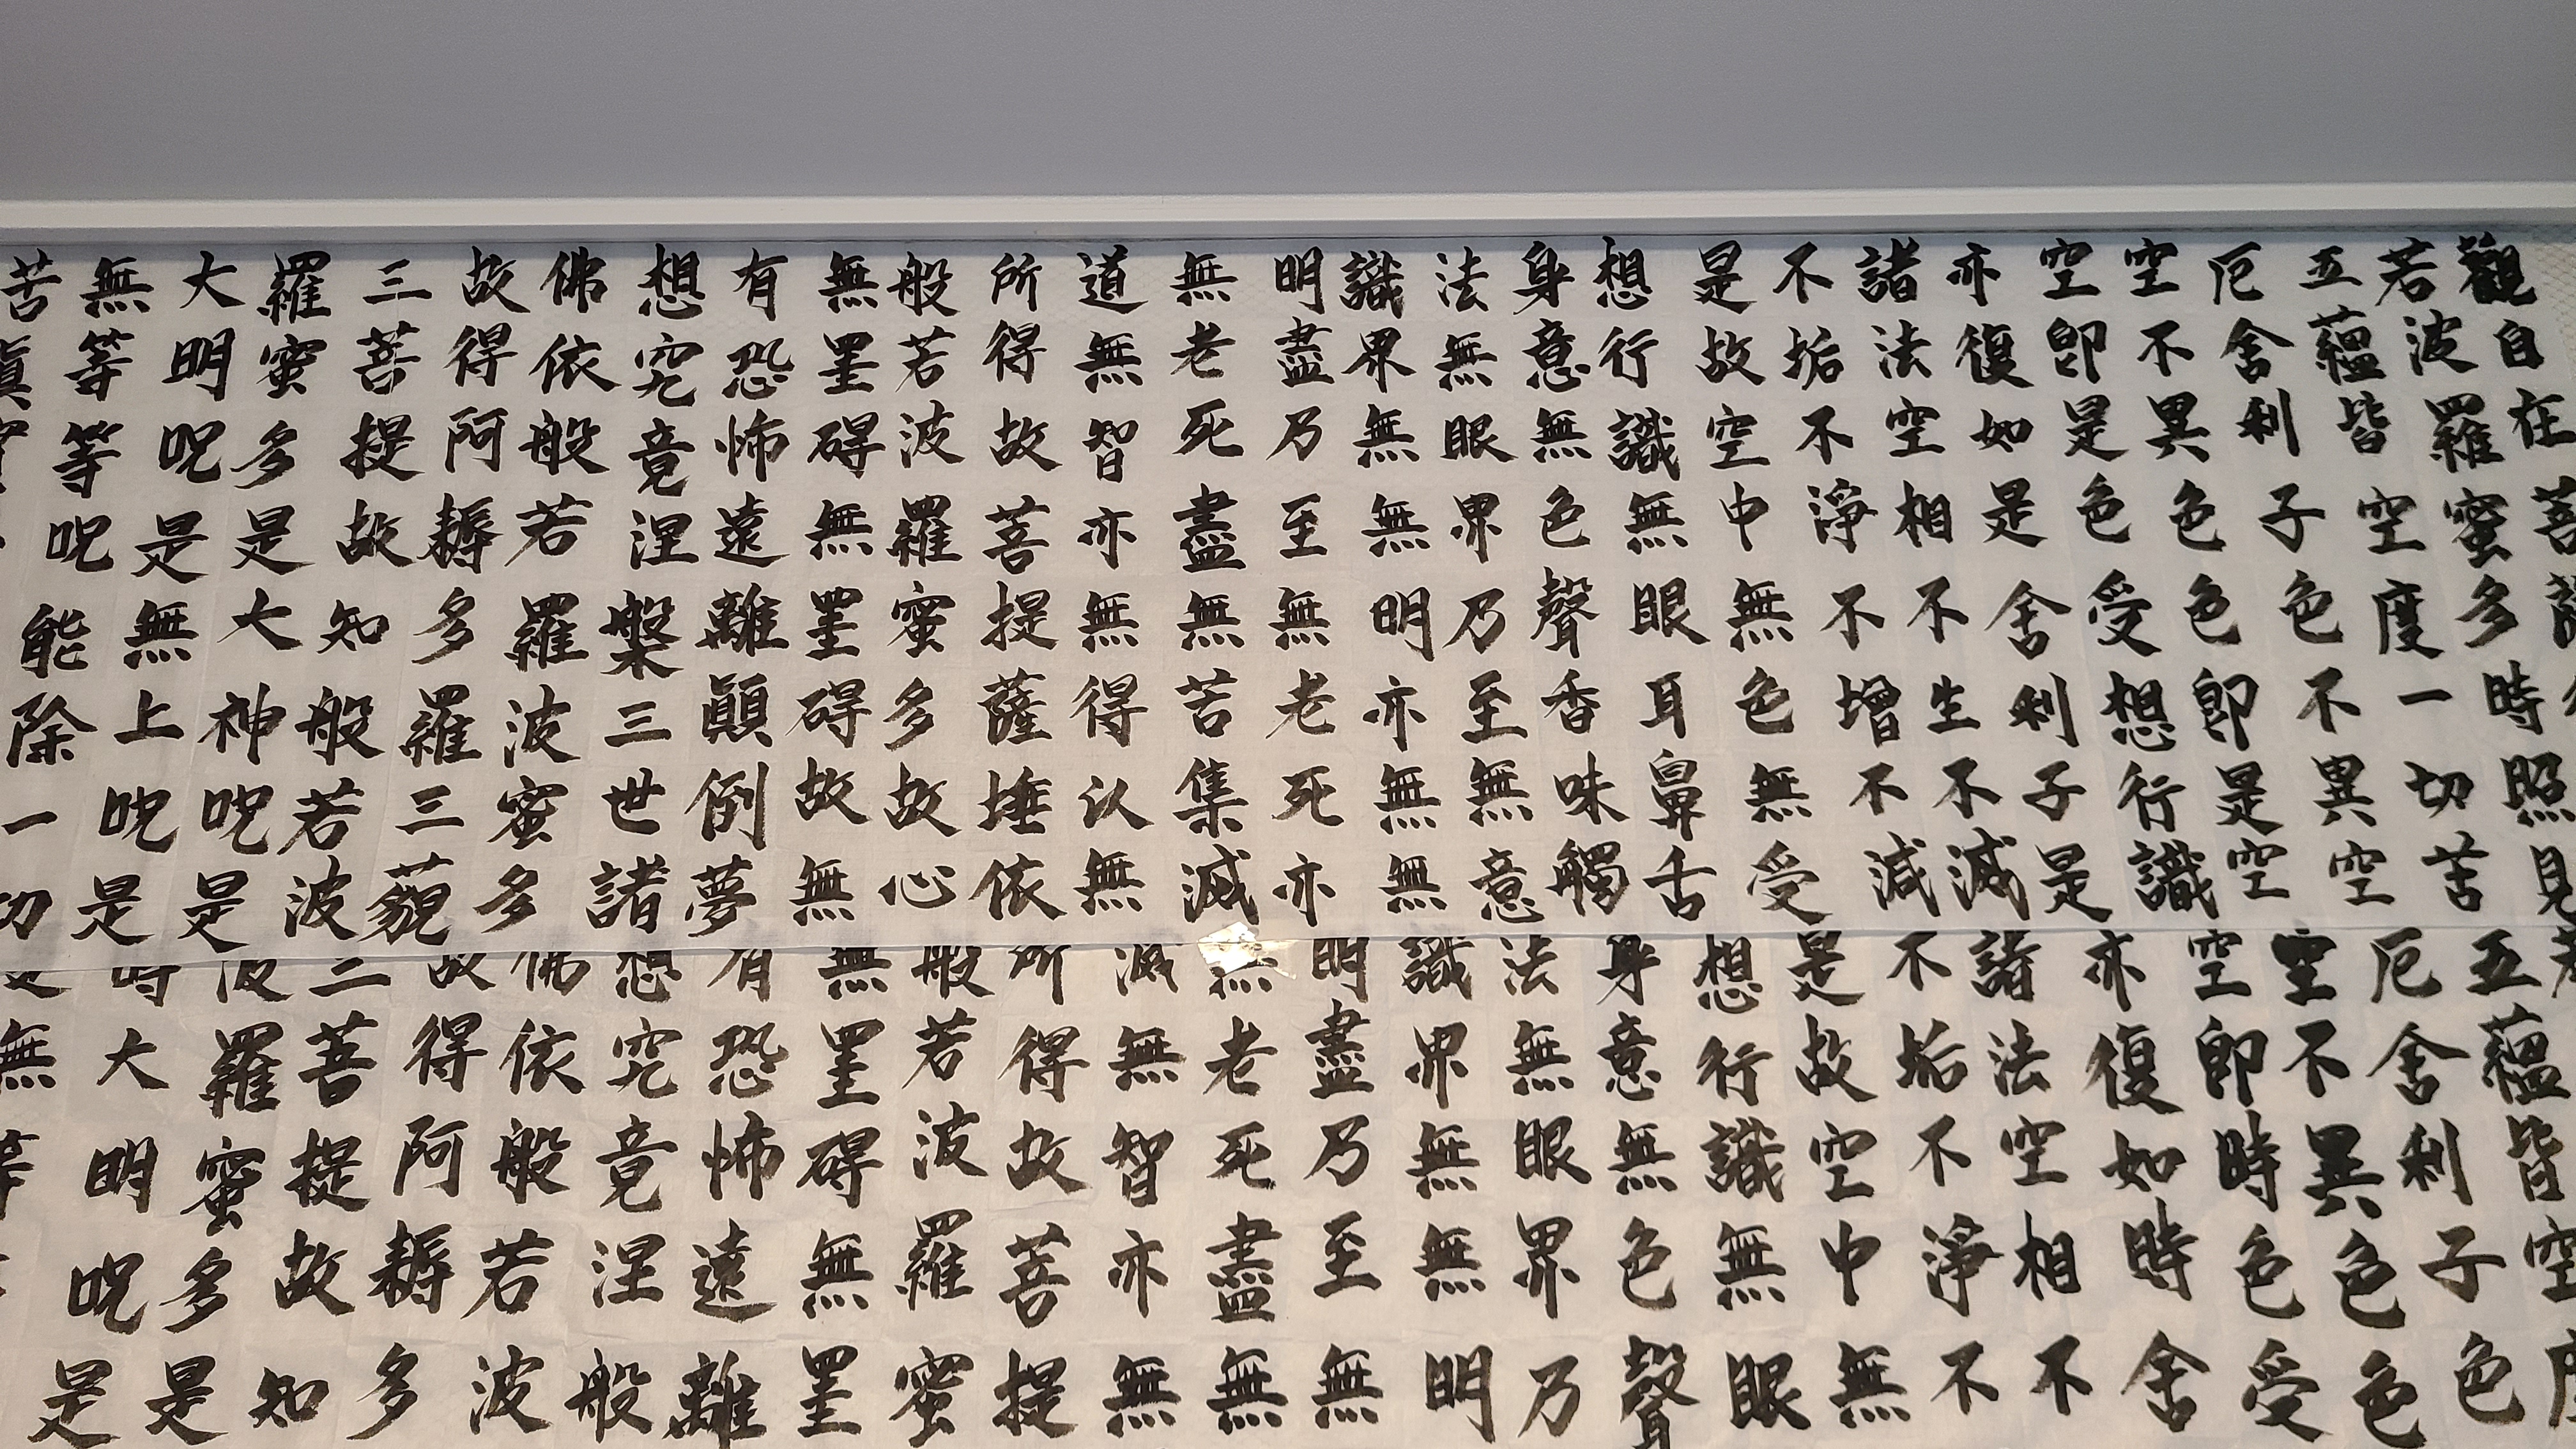 觀自在菩薩
若波羅蜜多時照見
五蘊皆空度一切苦
厄舍利子色不異空
空不異色色即是空
空即是色受想行識
亦復如是舍利子是
諸法空相不生不滅
不垢不淨不增不減
是故空中無色無受
想行識無眼耳鼻舌
身意無色聲香味觸
法無眼界乃至無意
識界無無明亦無無
明盡乃至無老死亦
無老死盡無苦集滅
道無智亦無得以無
所得故菩提薩埵依
般若波羅蜜多故心
無罣碍無罣碍故無
有恐怖遠離顛倒夢
想究竟涅槃三世諸
佛依般若羅波蜜多
故得阿耨多羅三藐
三菩提故知般若波
羅蜜多是大神呪是
大明呪是無上呪是
無等等呪能除一切
苦真
五蘊皆空度
厄舍利子色
空不異色色
空即時色受
亦復如時舍
諸法空相不
不垢不淨不
是故空中無
想行識無眼
身意無色聲
法無眼界乃
識界無無明
明盡乃至無
無老死盡無
滅無智亦無
所得故菩提
般若波羅蜜
無罣碍無罣
有恐怖遠離
想究竟涅般
佛依般若波
故得阿耨多
三菩提故知
波羅蜜多是
時大明呪是
無等